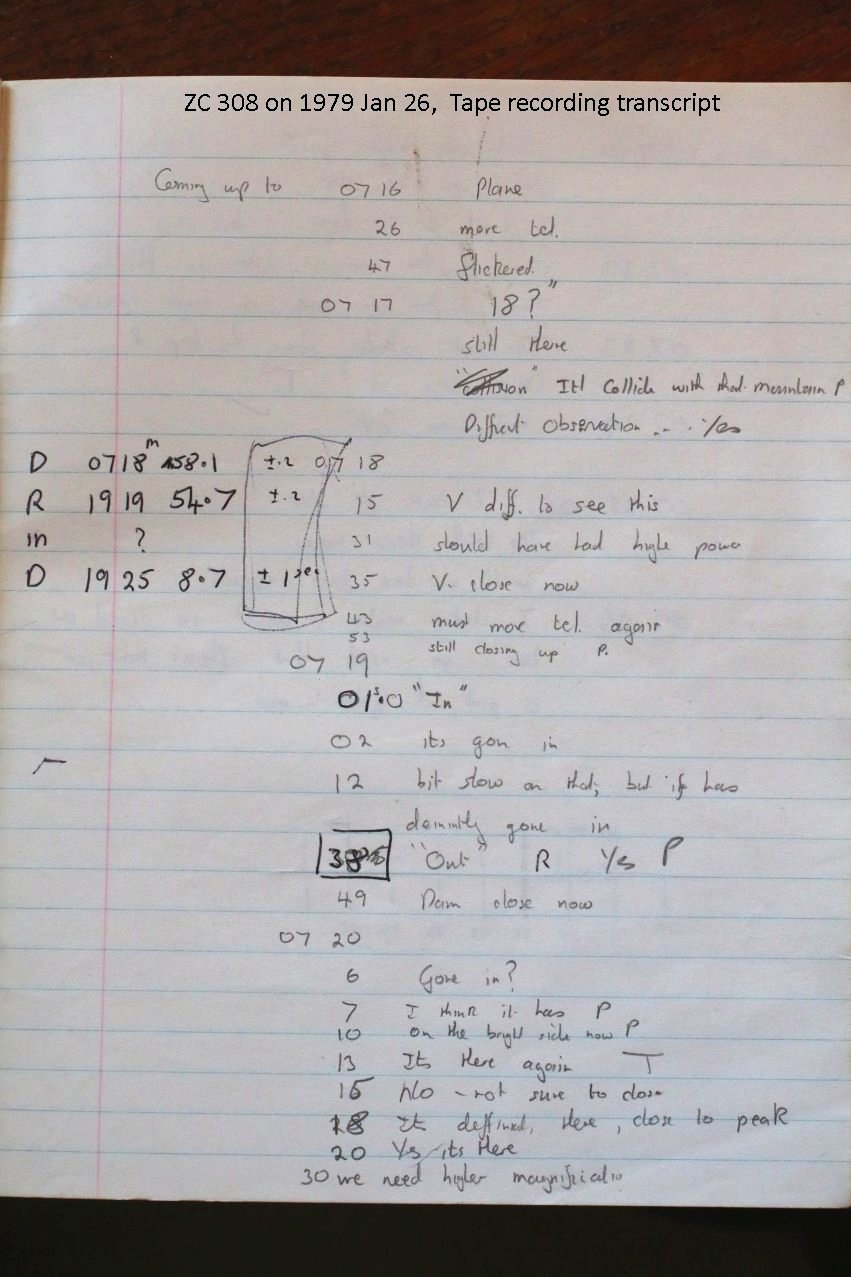 ZC 308 on 1979 Jan 26, Tape recording transcript
Coming up to 07 16 Plane
26 move tel.
47 flickered.
07 17 18"?
still there
It'l Collide with that mountain P
Diffrcut Observation - . Yes
D 07 18 m 58.1 ±.2 07 18
R 19 19 54.7 ±.2 15 V diff. to see this
in ? 31 should have had highe power
D 19 25 8.7 ± 1 sec 35 V. close now
43 must move tel. again
53 still closing up P.
07 19
01s.0 "In"
02 its gon in
12 bit slow on that; but it has
deninitly gone in
38 "Out" R Yes P
49 Darn close now
07 20
6 Gone in?
7 I think it has P
10 on the bright side now P
13 Its there again T
15 No - not sure to close
18 It deffined, there, close to peak
20 Yes its there
30 we need higher magnificatio